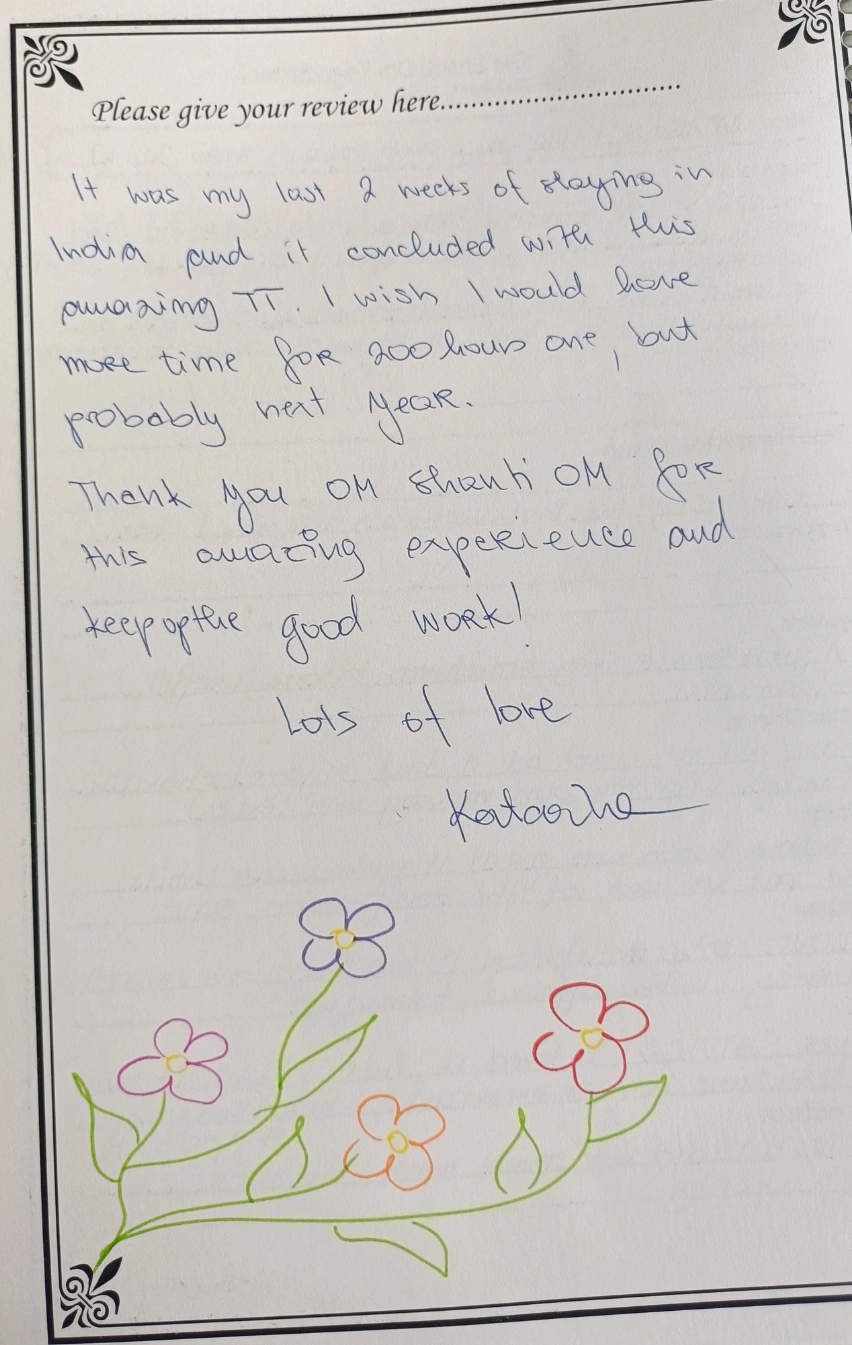 Please give your review here................................
It was my last 2 weeks of staying in
India and it concluded with this
amazing TT. I wish I would have
more time for 200 hours one, but
probably next year.
Thank you OM Shanti OM for
this amazing experience and
keep up the good work!
Lots of love